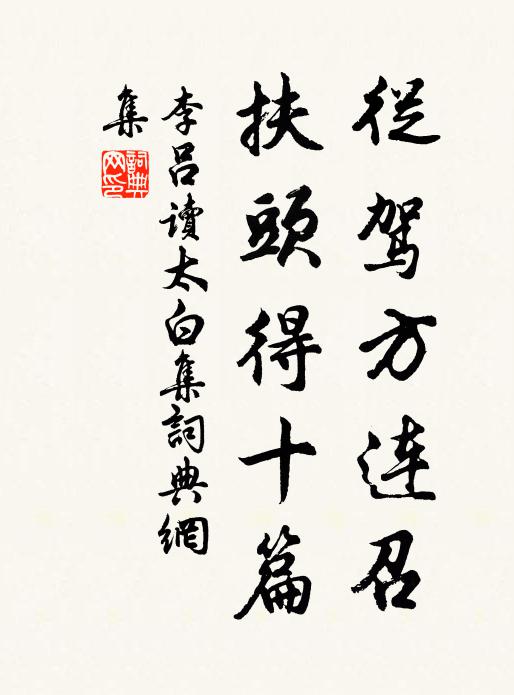 從駕方连召
扶頭得十篇
李吕讀太白集詞典網
集
詞典
网印